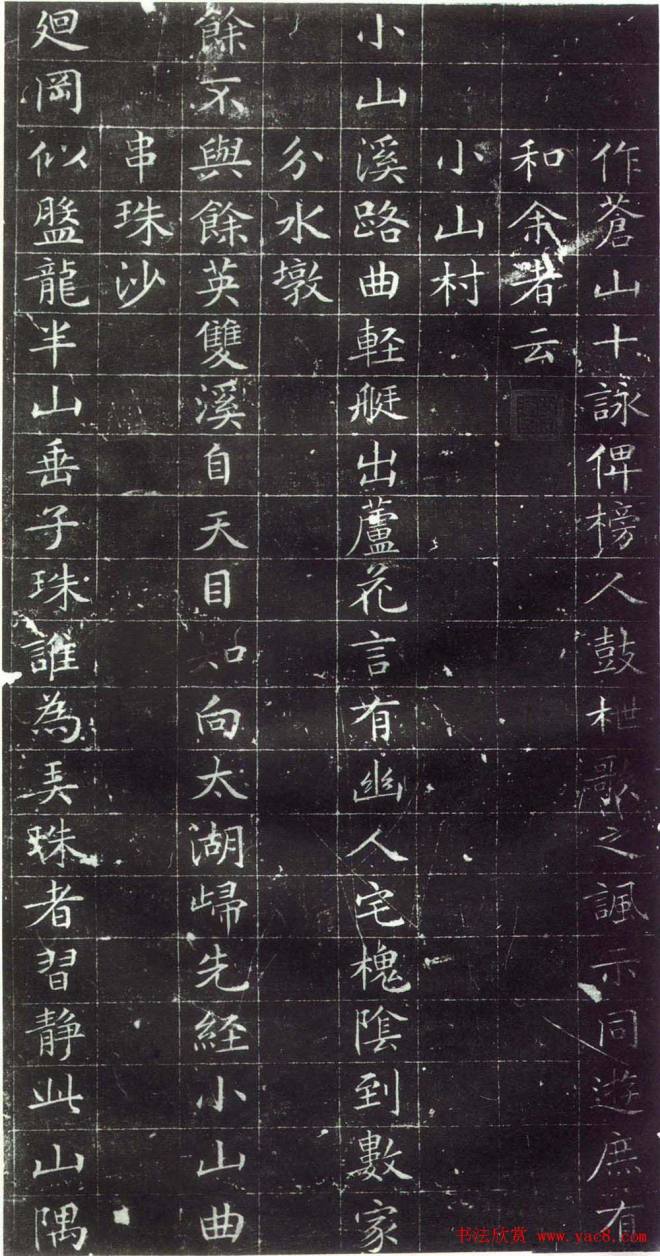 作蒼山十詠俾榜人鼓枻歌之諷示同遊庶有
和余者云
小山村
小山溪路曲軽艇出蘆花言有幽人宅槐陰到數家
分水墩
餘不與餘英雙溪自天目知向太湖歸先経小山曲
串珠沙
廻岡似盤龍半山垂子珠誰為弄珠者習靜此山隅
书法欣赏 www.yac8.com